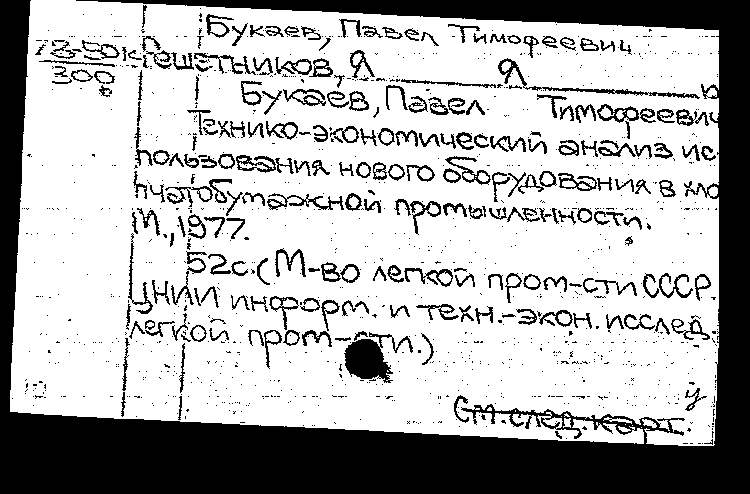 Букаев, Павел Тимофеевич
78-50к Решетников, Я Я
300
Букаев, Павел Тимофеевич
Технико-экономический анализ ис-
пользования нового оборудования в хло
пчатобумажной промышленности.
М., 1977.
52с. (М-во легкой пром-сти СССР.
ЦНИИ информ. и техн.-экон. исслед.
легкой пром-сти.)
у
См. след. карт.